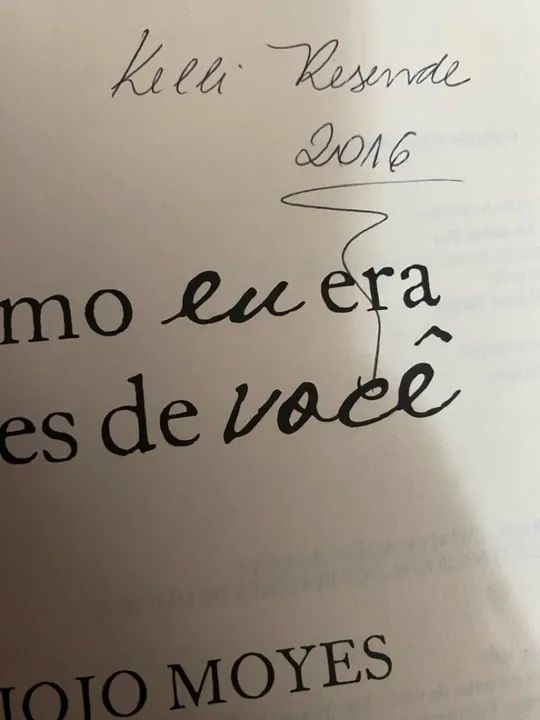 Kelli Resende
2016
mo eu era
es de você
JOJO MOYES